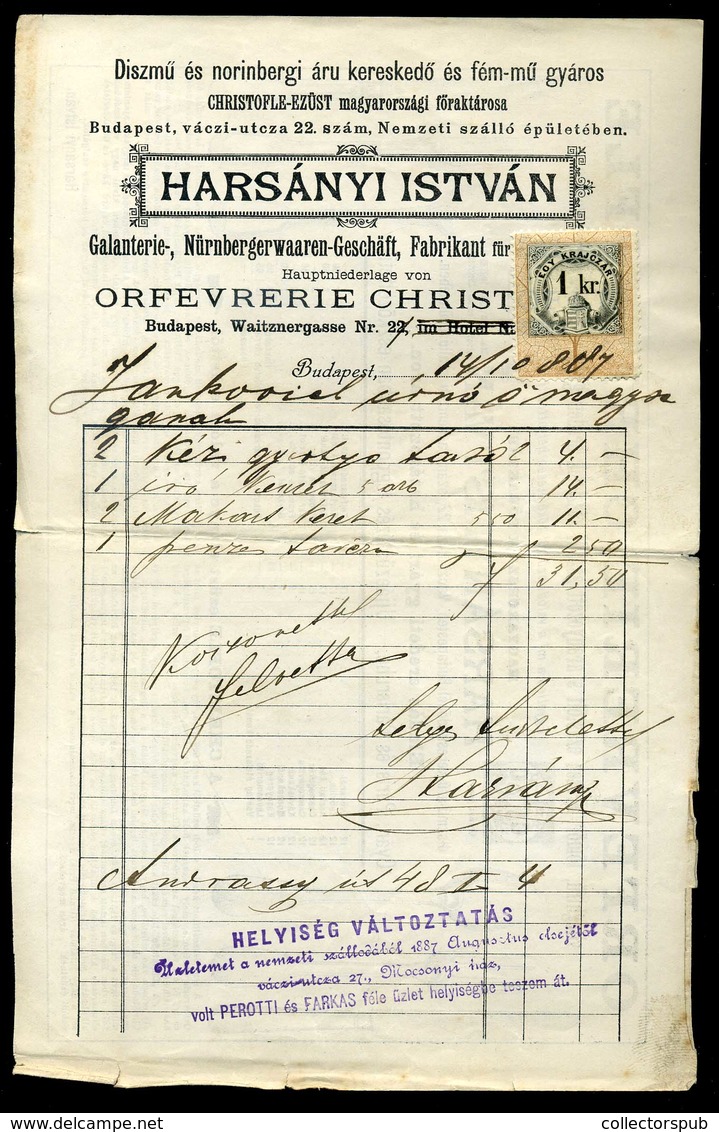 Diszmű és norinbergi áru kereskedő és fém-mű gyáros
CHRISTOFLE-EZÜST magyarországi főraktárosa
Budapest, váczi-utcza 22. szám, Nemzeti szálló épületében.
HARSÁNYI ISTVÁN
Galanterie-, Nürnbergerwaaren-Geschäft, Fabrikant für
Hauptniederlage von
ORFEVRERIE CHRIST
Budapest, Waitznergasse Nr. 27, im Hotel N
EGY KRAJCZÁR
1 kr.
Budapest, 14/10 887
úrnő ő
2 Kézi gyertya tartó 4.—
1 14.—
2 Makart Keret 5 50 11.—
1 2 50
31,50
Köszönettel
felvette
Harsányi
Andrassy út 48 I 4
HELYISÉG VÁLTOZTATÁS
Üzletemet a nemzeti szállodából 1887 Augusztus elsejétől
váczi-utcza 27., Mocsonyi ház,
volt PEROTTI és FARKAS féle üzlet helyiségbe teszem át.
collectorspub
www.delcampe.net